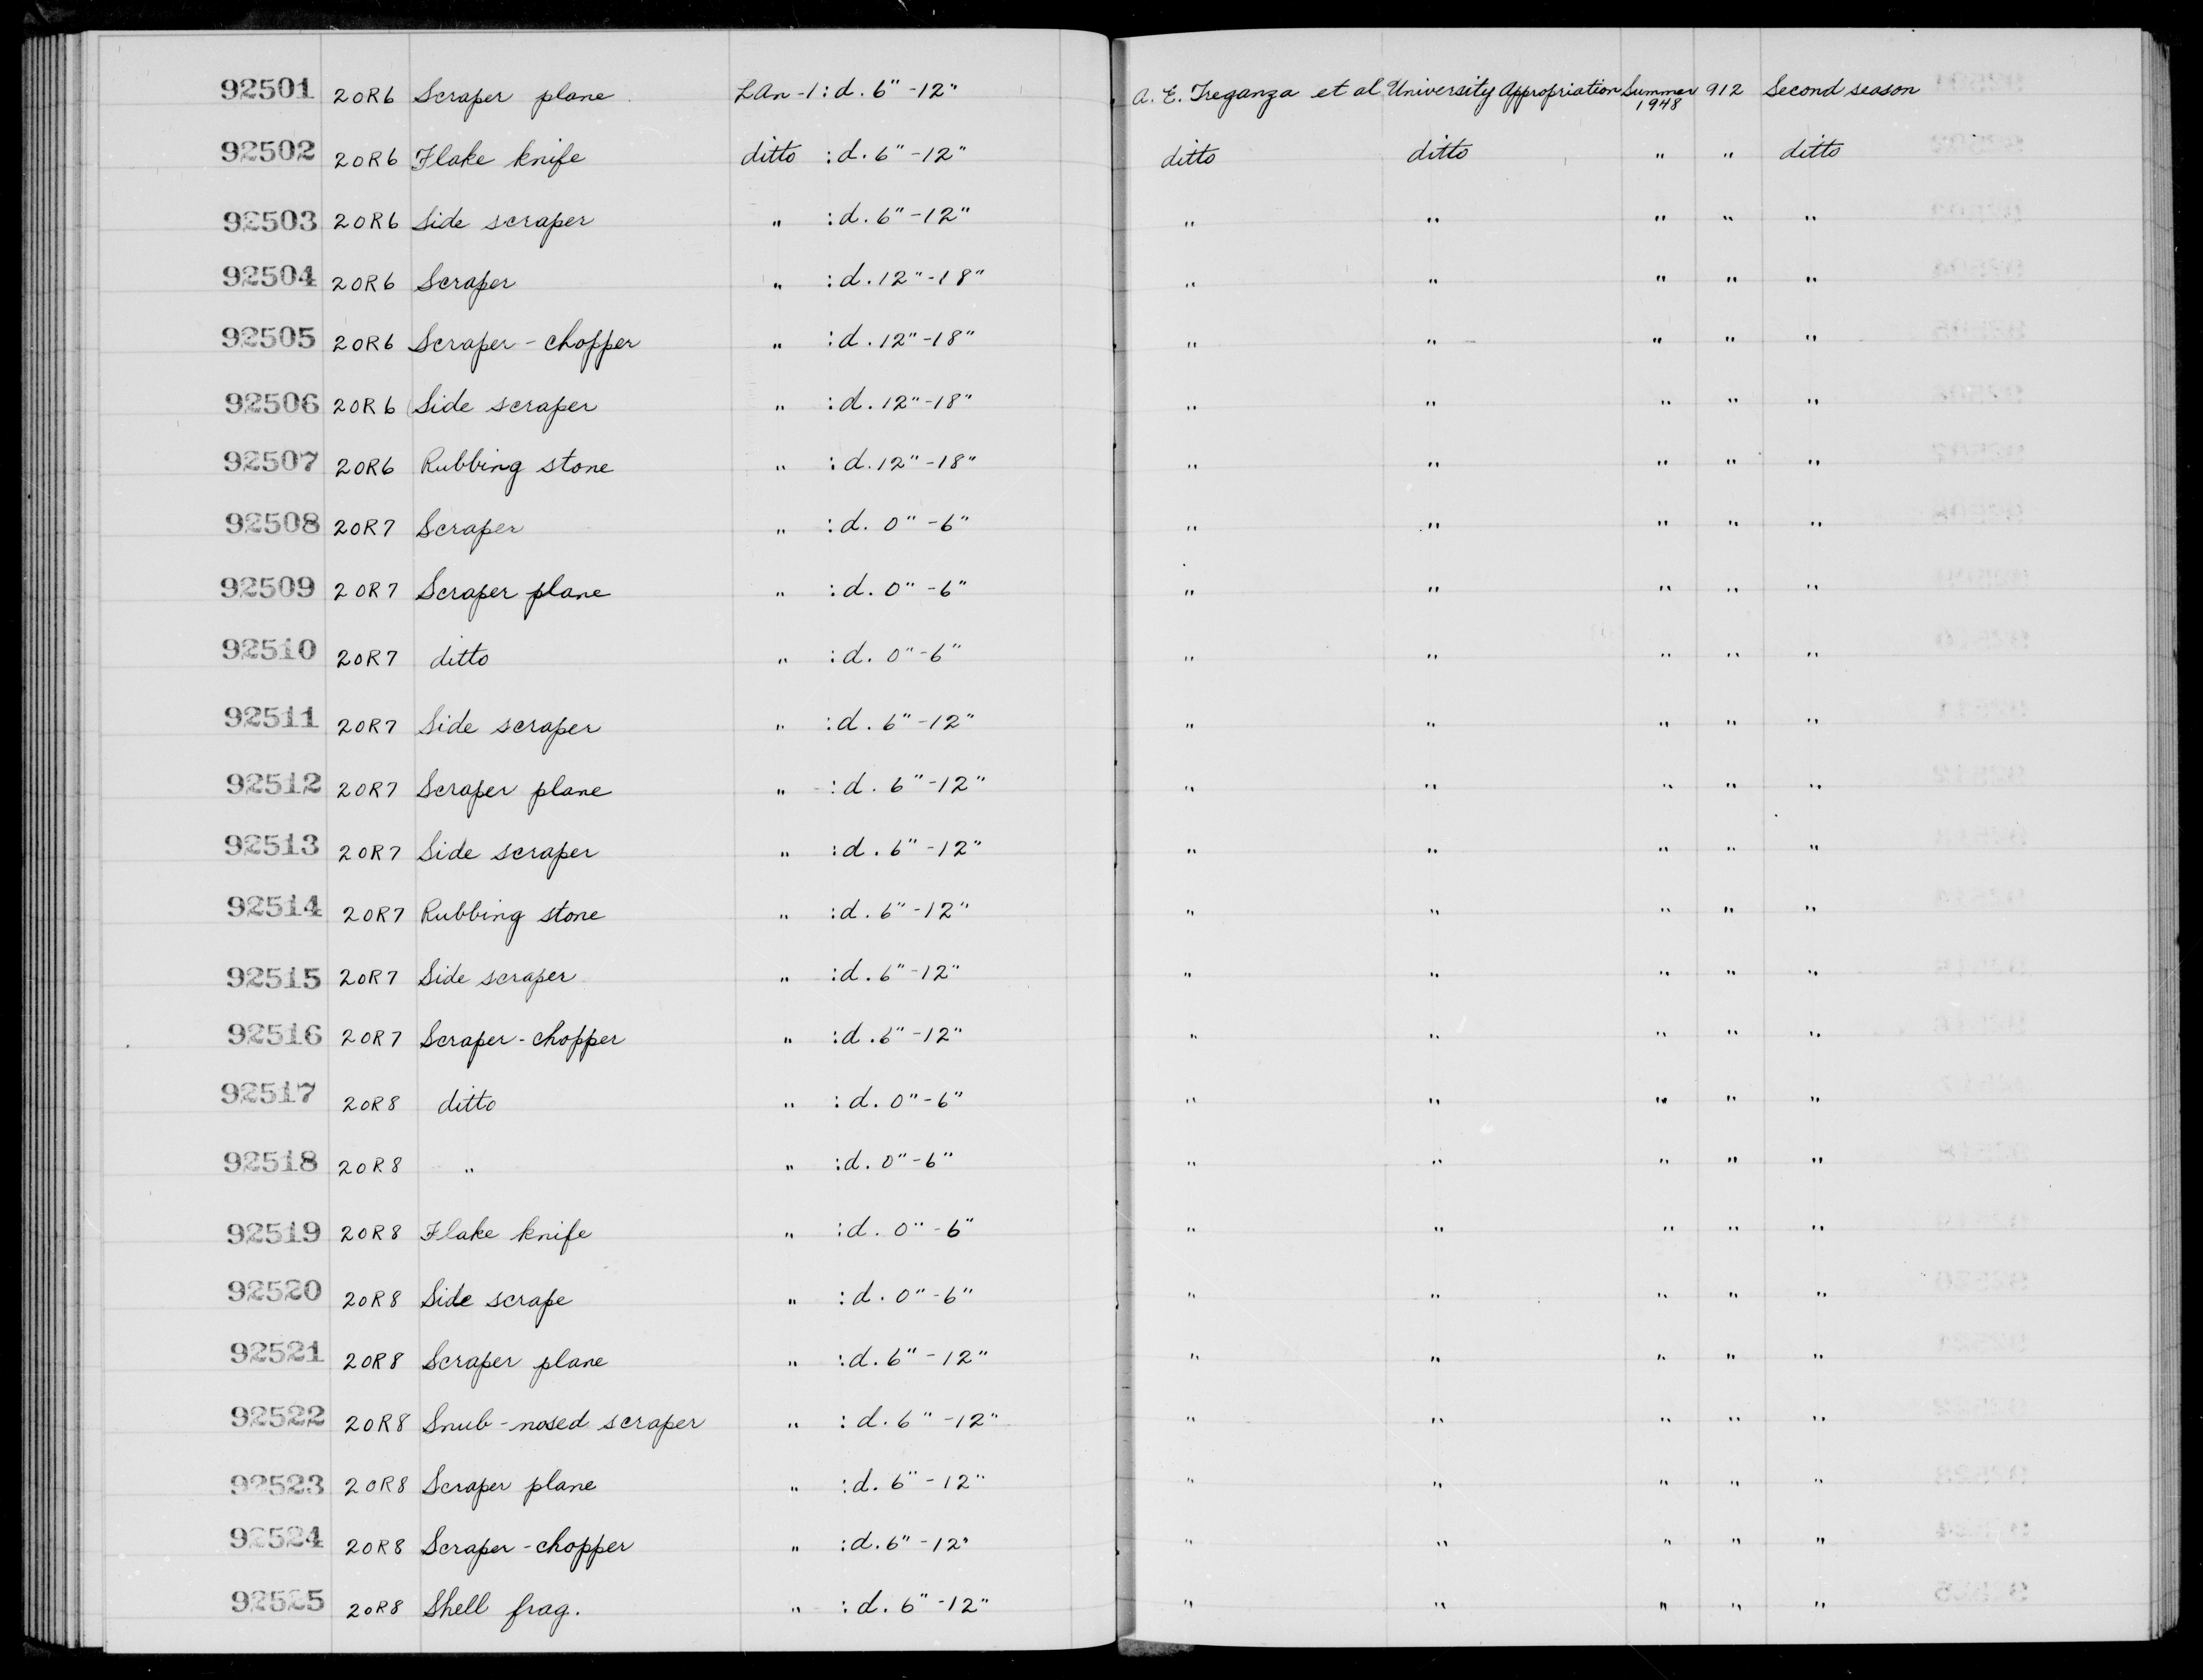 92501 20R6 Scraper plane LAn-1 : d. 6" -12" A. E. Treganza et al University Appropriation Summer 1948 912 Second season
92502 20R6 Flake knife ditto : d. 6" -12" ditto ditto " " ditto
92503 20R6 Side scraper " : d. 6" -12" " " " " "
92504 20R6 Scraper " : d. 12" -18" " " " " "
92505 20R6 Scraper - chopper " : d. 12" -18" " " " " "
92506 20R6 Side scraper " : d. 12" -18" " " " " "
92507 20R6 Rubbing stone " : d. 12" -18" " " " " "
92508 20R7 Scraper " : d. 0" -6" " " " " "
92509 20R7 Scraper plane " : d. 0" -6" " " " " "
92510 20R7 ditto " : d. 0" -6" " " " " "
92511 20R7 Side scraper " : d. 6" -12" " " " " "
92512 20R7 Scraper plane " : d. 6" -12" " " " " "
92513 20R7 Side scraper " : d. 6" -12" " " " " "
92514 20R7 Rubbing stone " : d. 6" -12" " " " " "
92515 20R7 Side scraper " : d. 6" -12" " " " " "
92516 20R7 Scraper - chopper " : d. 6" -12" " " " " "
92517 20R8 ditto " : d. 0" -6" " " " " "
92518 20R8 " " : d. 0" -6" " " " " "
92519 20R8 Flake knife " : d. 0" -6" " " " " "
92520 20R8 Side scrape " : d. 0" -6" " " " " "
92521 20R8 Scraper plane " : d. 6" -12" " " " " "
92522 20R8 Snub - nosed scraper " : d. 6" -12" " " " " "
92523 20R8 Scraper plane " : d. 6" -12" " " " " "
92524 20R8 Scraper - chopper " : d. 6" -12" " " " " "
92525 20R8 Shell frag. " : d. 6" -12" " " " " "